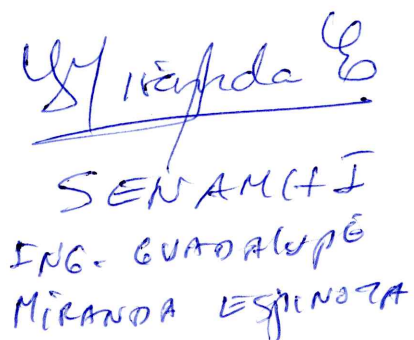 GMiranda E
SENAMHI
ING. GUADALUPE
MIRANDA ESPINOZA